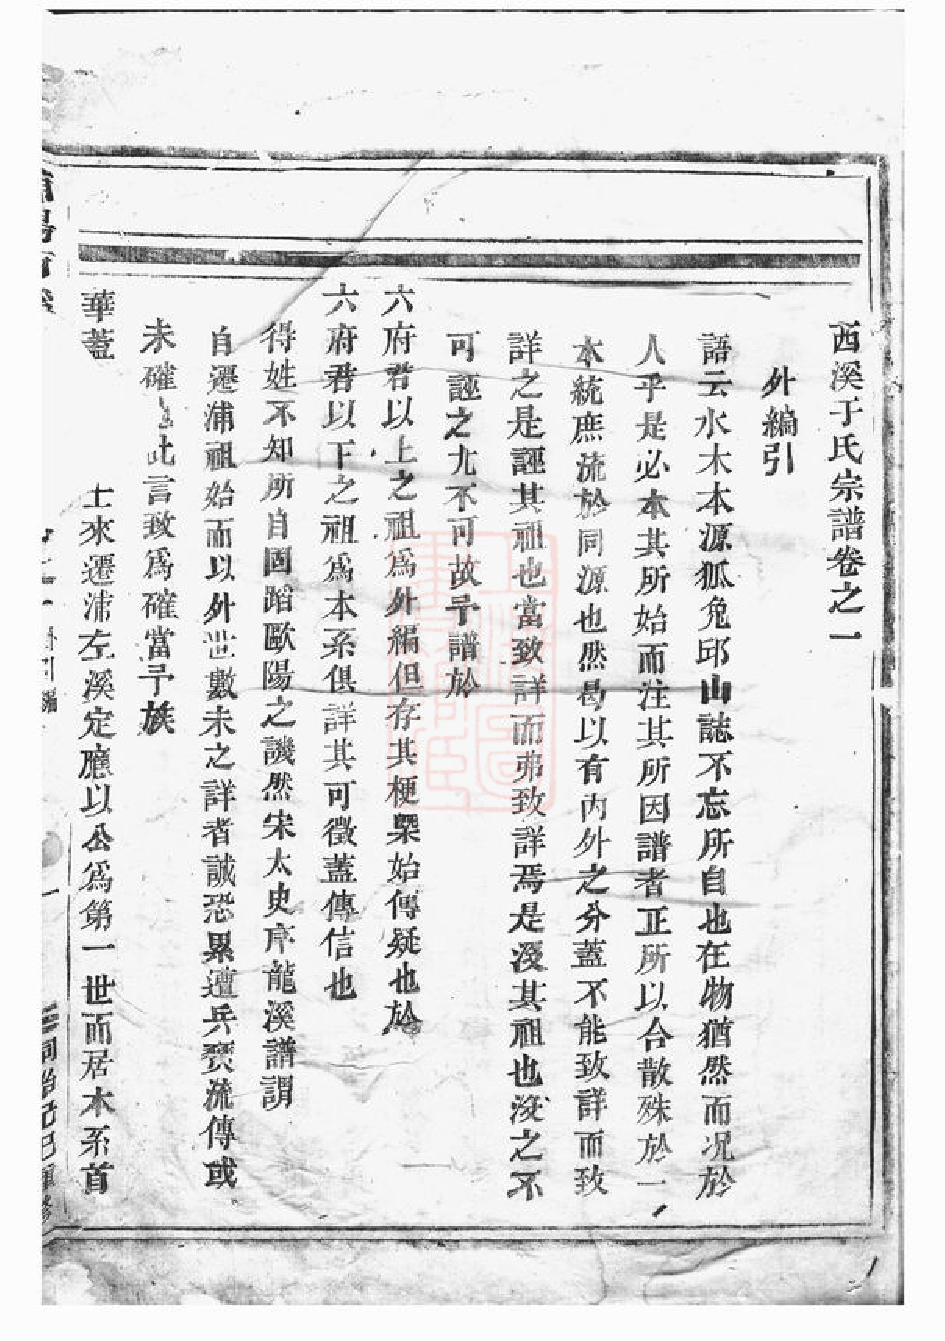 西溪于氏宗譜卷之一
外編引
語云水木本源狐兔邱山誌不忘所自也在物猶然而况於
人乎是必本其所始而注其所因譜者正所以合散殊於一
本統庶流於同源也然曷以有內外之分蓋不能致詳而致
詳之是誣其祖也當致詳而弗致詳焉是沒其祖也沒之不
可誣之尤不可故予譜於
六府君以上之祖爲外編但存其梗槩始傳疑也於
六府君以下之祖爲本系俱詳其可徵蓋傳信也
得姓不知所自固蹈歐陽之譏然宋太史序龍溪譜謂
自遷浦祖始而以外世數未之詳者誠恐累遭兵燹流傳或
未確 此言致爲確當予族
華蓋 士來遷浦左溪定廳以公爲第一世而居本系首
同治己巳重修